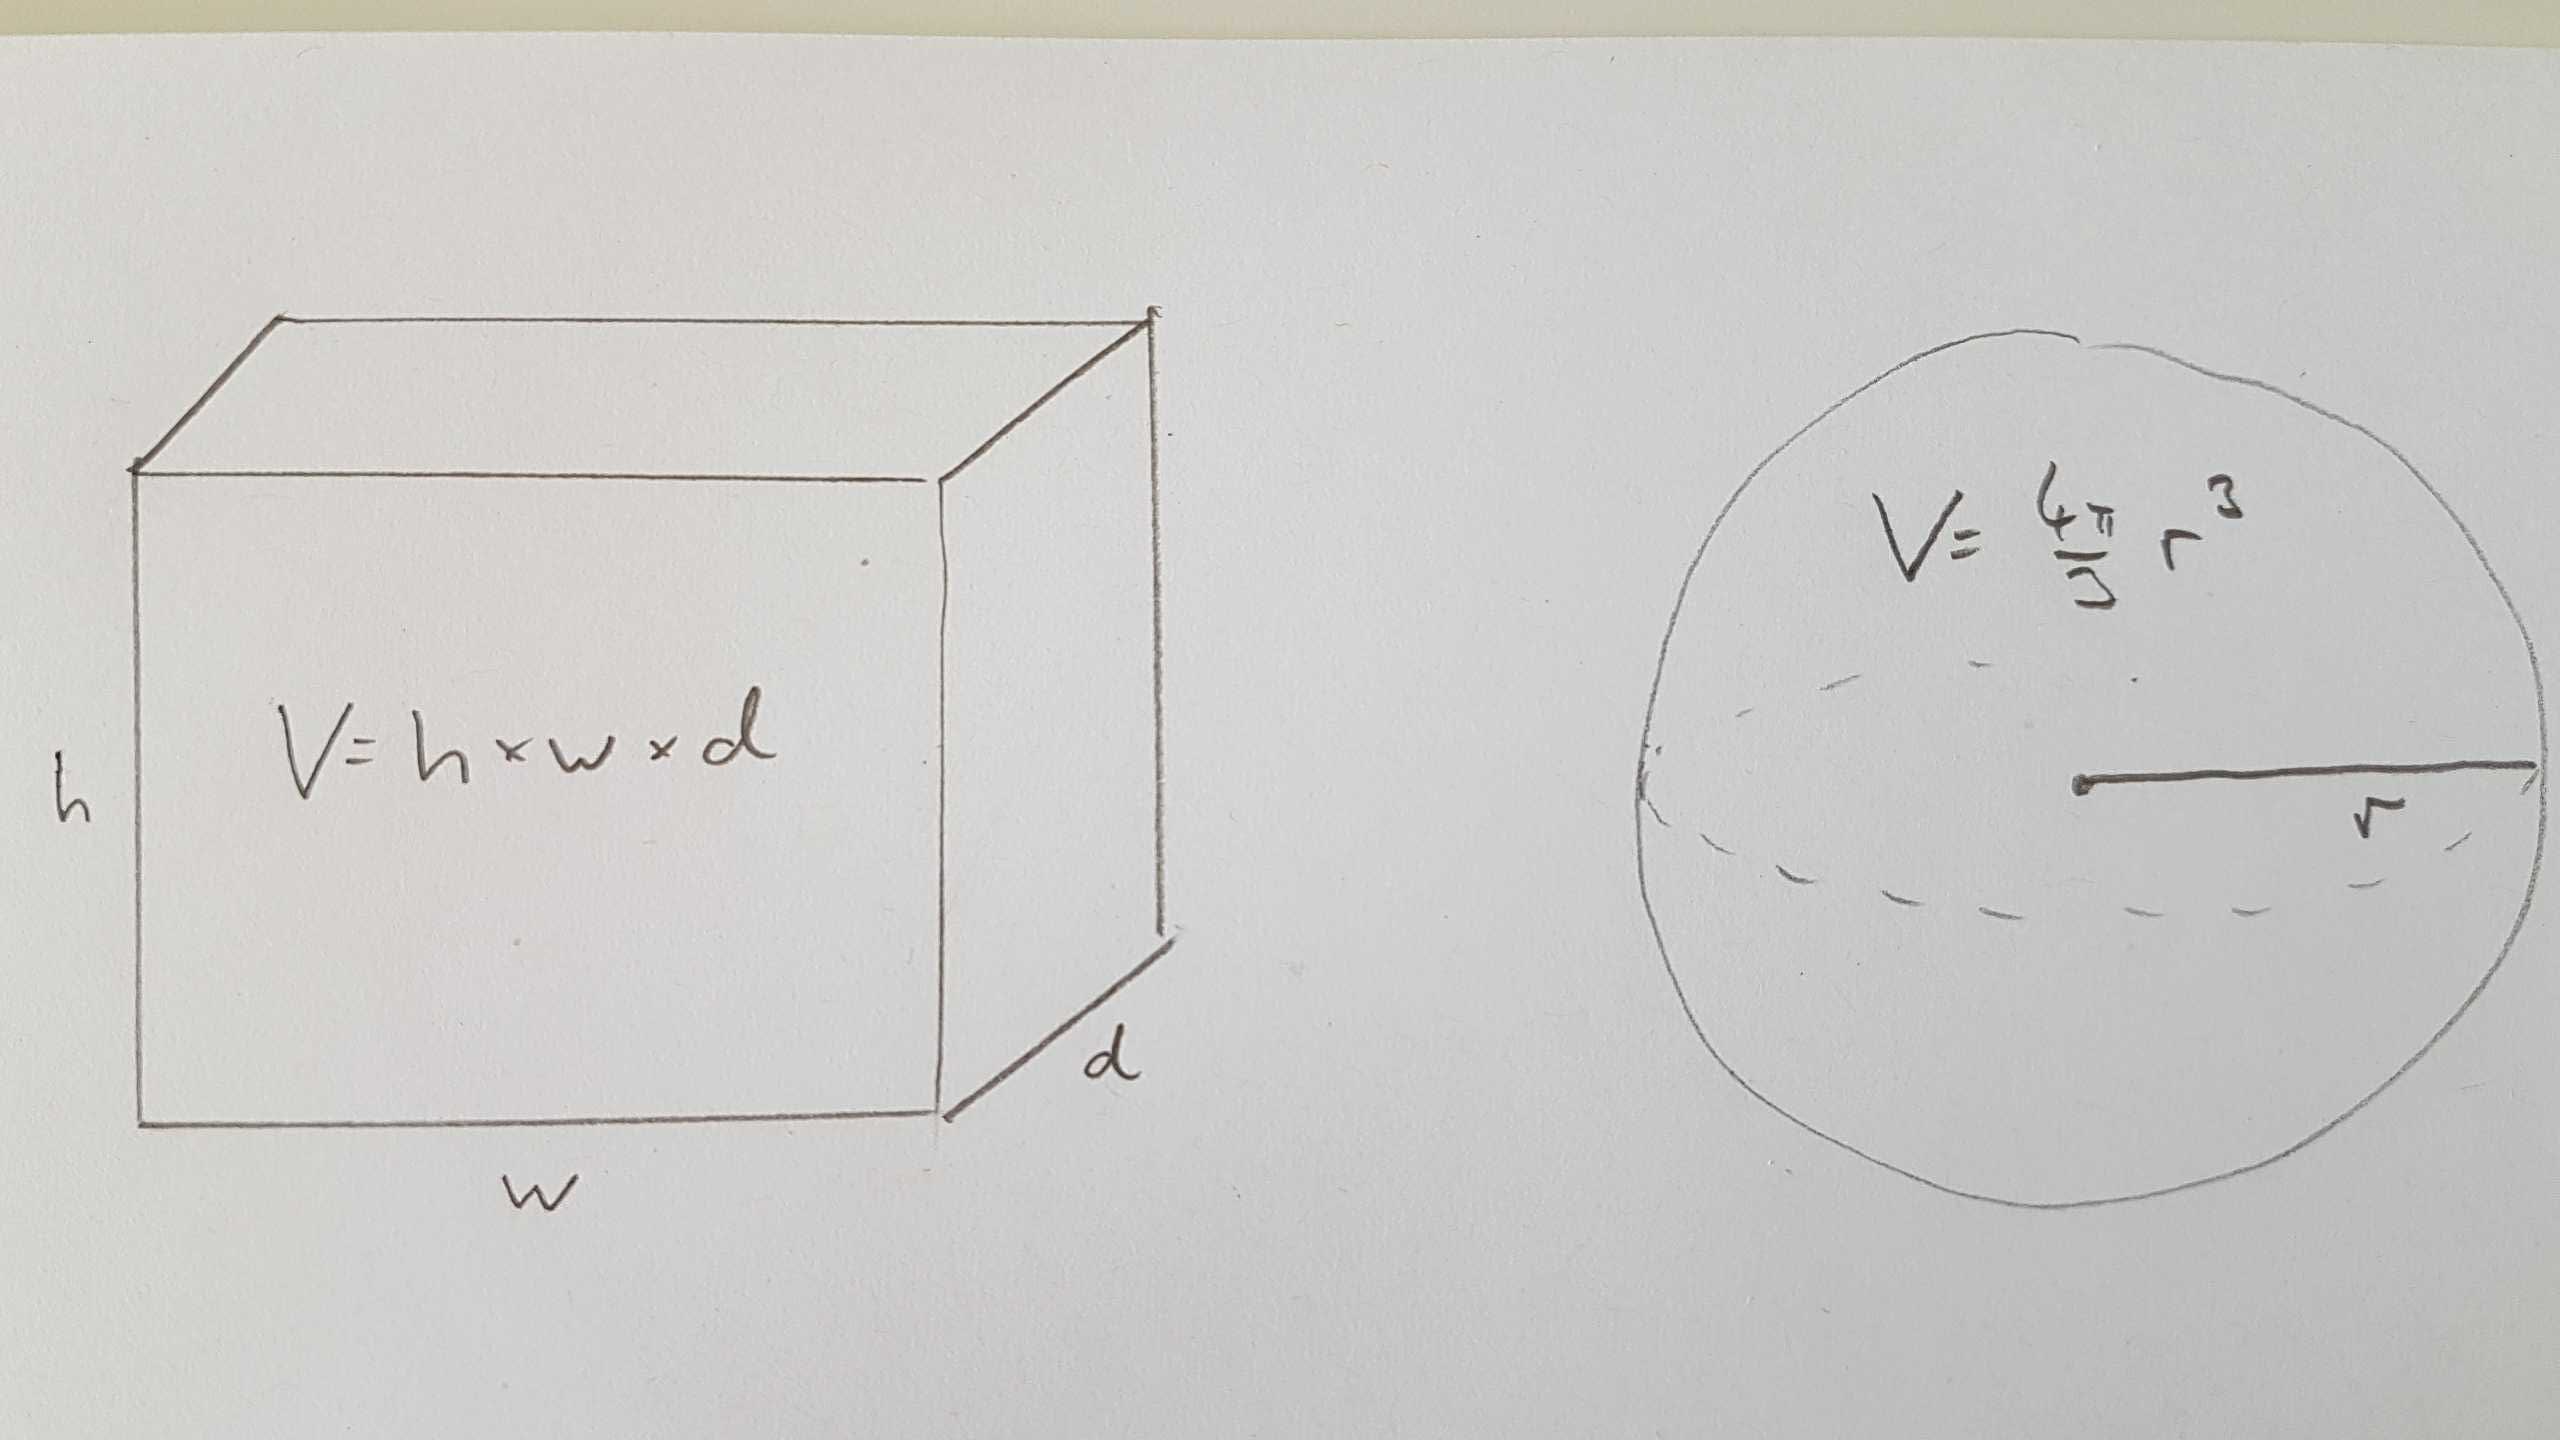 V = h × w × d
h
w
d
V = 4π/3 r³
r